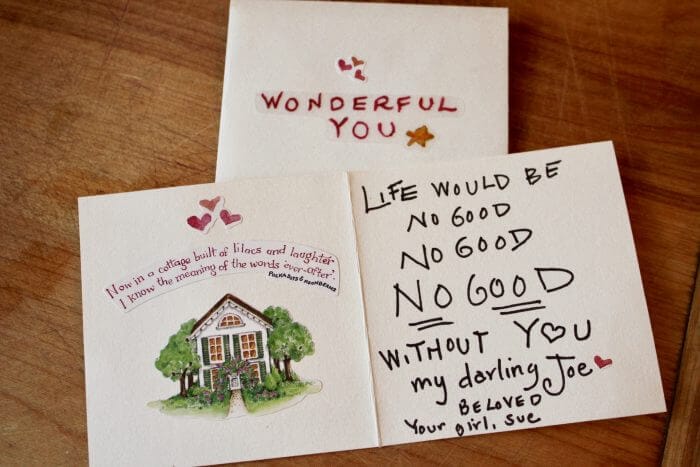 WONDERFUL
YOU
Now in a cottage built of lilacs and laughter
I know the meaning of the words 'ever-after'.
POLKADOTS & MOONBEAMS
LIFE WOULD BE
NO GOOD
NO GOOD
NO GOOD
WITHOUT YOU
my darling Joe
BELOVED
Your girl, Sue